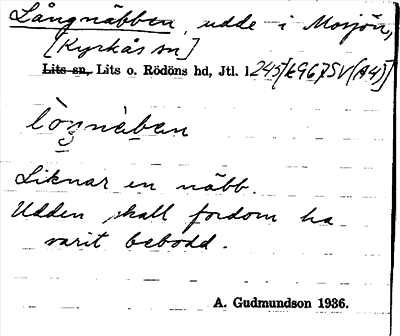 Långnäbben, udde i Mosjön,
[Kyrkås sn]
Lits sn, Lits o. Rödöns hd, Jtl. l.
Liknar en näbb.
Udden skall fordom ha
varit bebodd.
A. Gudmundson 1936.